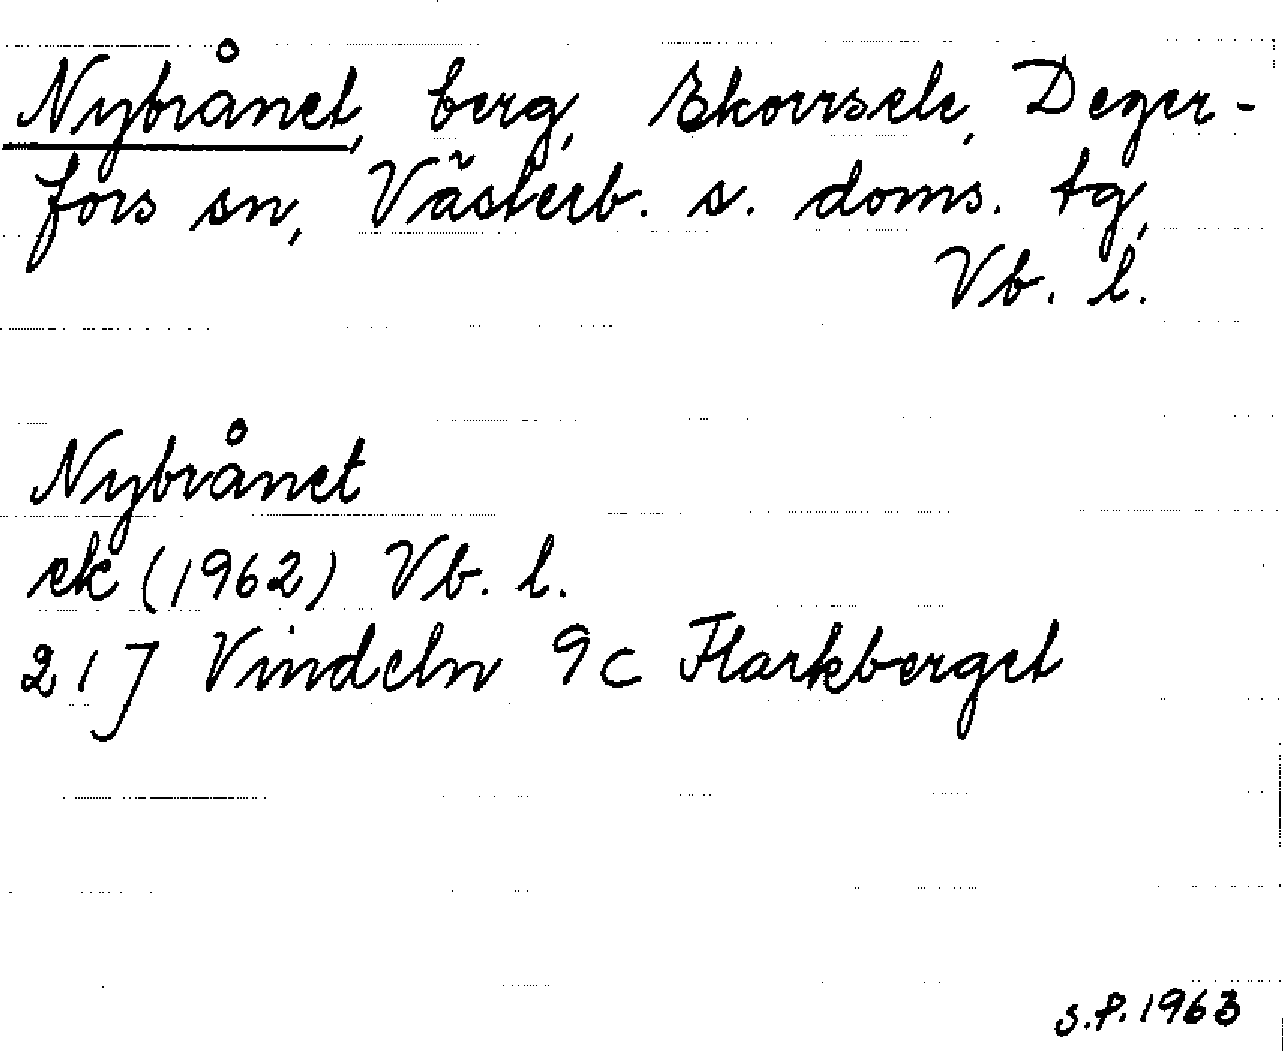 Nybrånet, berg, Ekorrsele, Deger-
fors sn, Västerb. s. doms. tg,
Vb. l.
Nybrånet
ek (1962) Vb. l.
21J Vindeln 9c Flarkberget
S.P. 1963